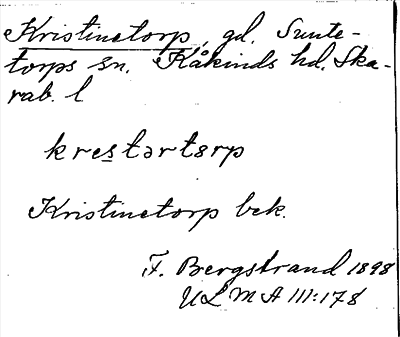 Kristinetorp, gd. Sunte-
torps sn. Kåkinds hd. Ska-
rab. l
krestərtɵrp
Kristinetorp bek.
F. Bergstrand 1898
ULMA 111:178